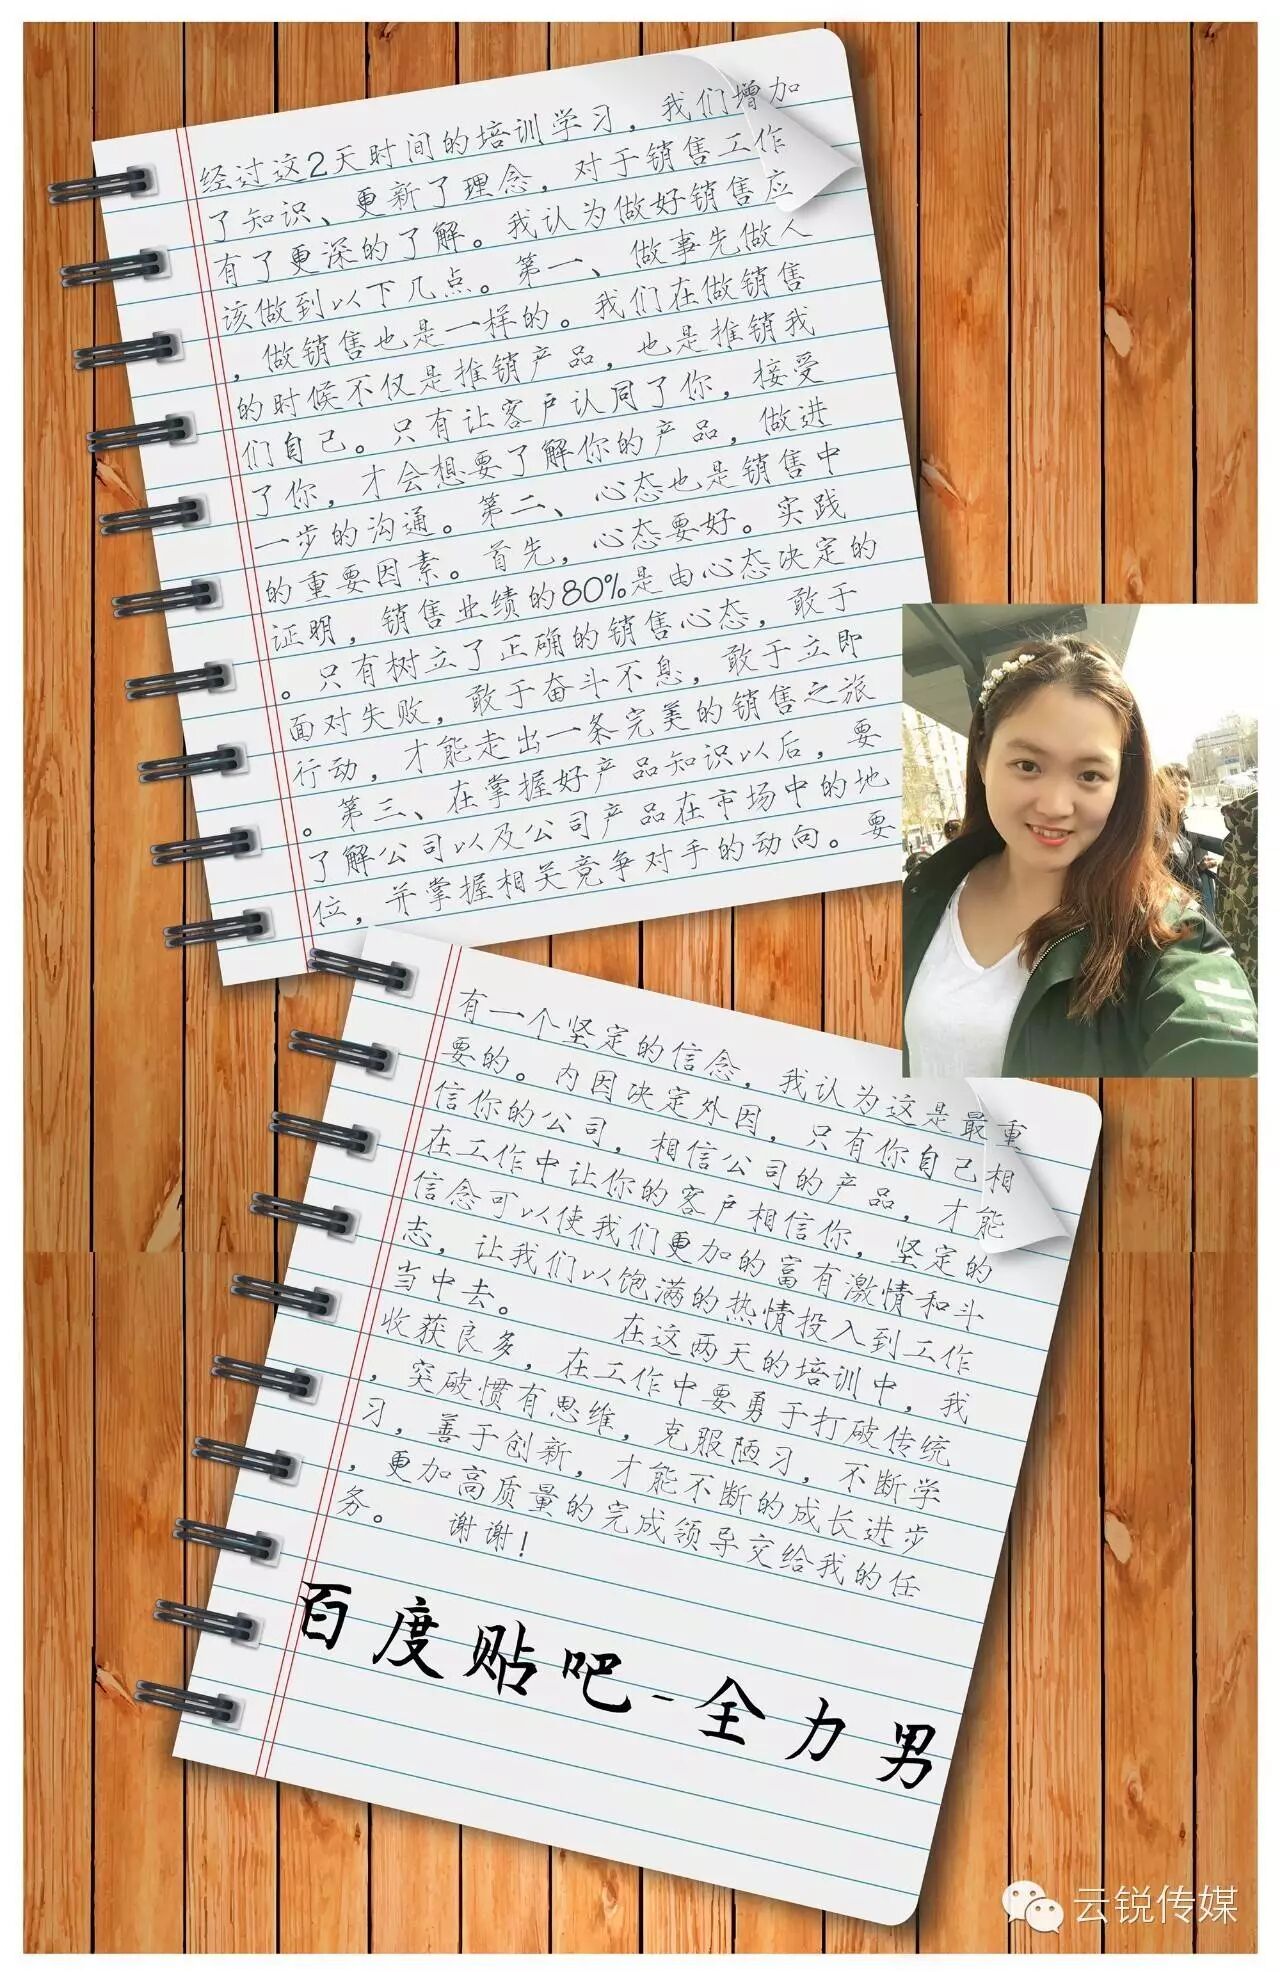 经过这2天时间的培训学习，我们增加
了知识、更新了理念，对于销售工作
有了更深的了解。我认为做好销售应
该做到以下几点。第一、做事先做人
，做销售也是一样的。我们在做销售
的时候不仅是推销产品，也是推销我
们自己。只有让客户认同了你，接受
了你，才会想要了解你的产品，做进
一步的沟通。第二、心态也是销售中
的重要因素。首先，心态要好。实践
证明，销售业绩的80%是由心态决定的
。只有树立了正确的销售心态，敢于
面对失败，敢于奋斗不息，敢于立即
行动，才能走出一条完美的销售之旅
。第三、在掌握好产品知识以后，要
了解公司以及公司产品在市场中的地
位，并掌握相关竞争对手的动向。要
有一个坚定的信念，我认为这是最重
要的。内因决定外因，只有你自己相
信你的公司，相信公司的产品，才能
在工作中让你的客户相信你，坚定的
信念可以使我们更加的富有激情和斗
志，让我们以饱满的热情投入到工作
当中去。 在这两天的培训中，我
收获良多，在工作中要勇于打破传统
，突破惯有思维，克服陋习，不断学
习，善于创新，才能不断的成长进步
，更加高质量的完成领导交给我的任
务。 谢谢！
百度贴吧-全力男
云锐传媒